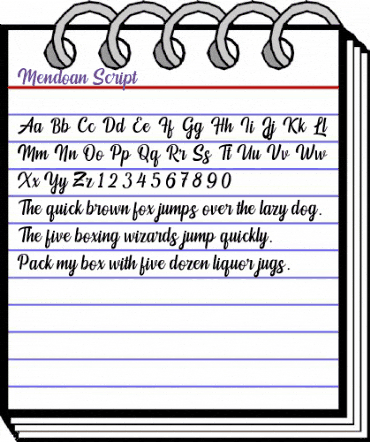 Mendoan Script
Aa Bb Cc Dd Ee Ff Gg Hh Ii Jj Kk Ll
Mm Nn Oo Pp Qq Rr Ss Tt Uu Vv Ww
Xx Yy Zz 1 2 3 4 5 6 7 8 9 0
The quick brown fox jumps over the lazy dog.
The five boxing wizards jump quickly.
Pack my box with five dozen liquor jugs.